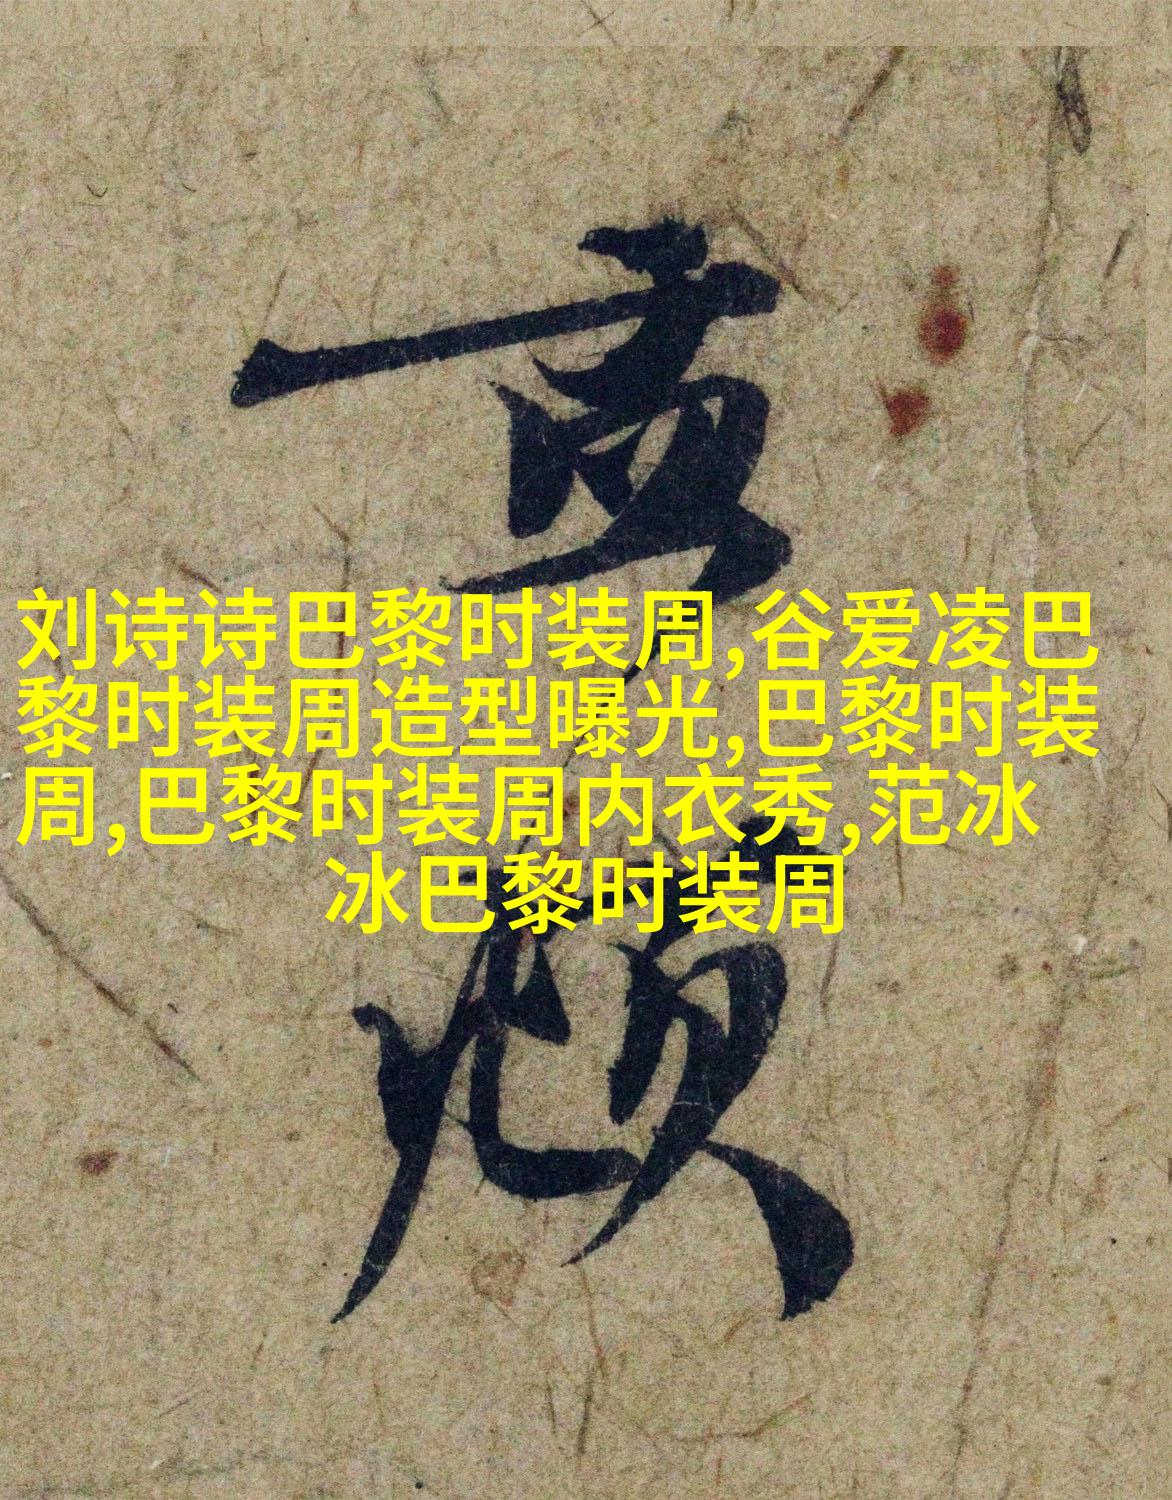 刘诗诗巴黎时装周,谷爱凌巴
黎时装周造型曝光,巴黎时装
周,巴黎时装周内衣秀,范冰
冰巴黎时装周